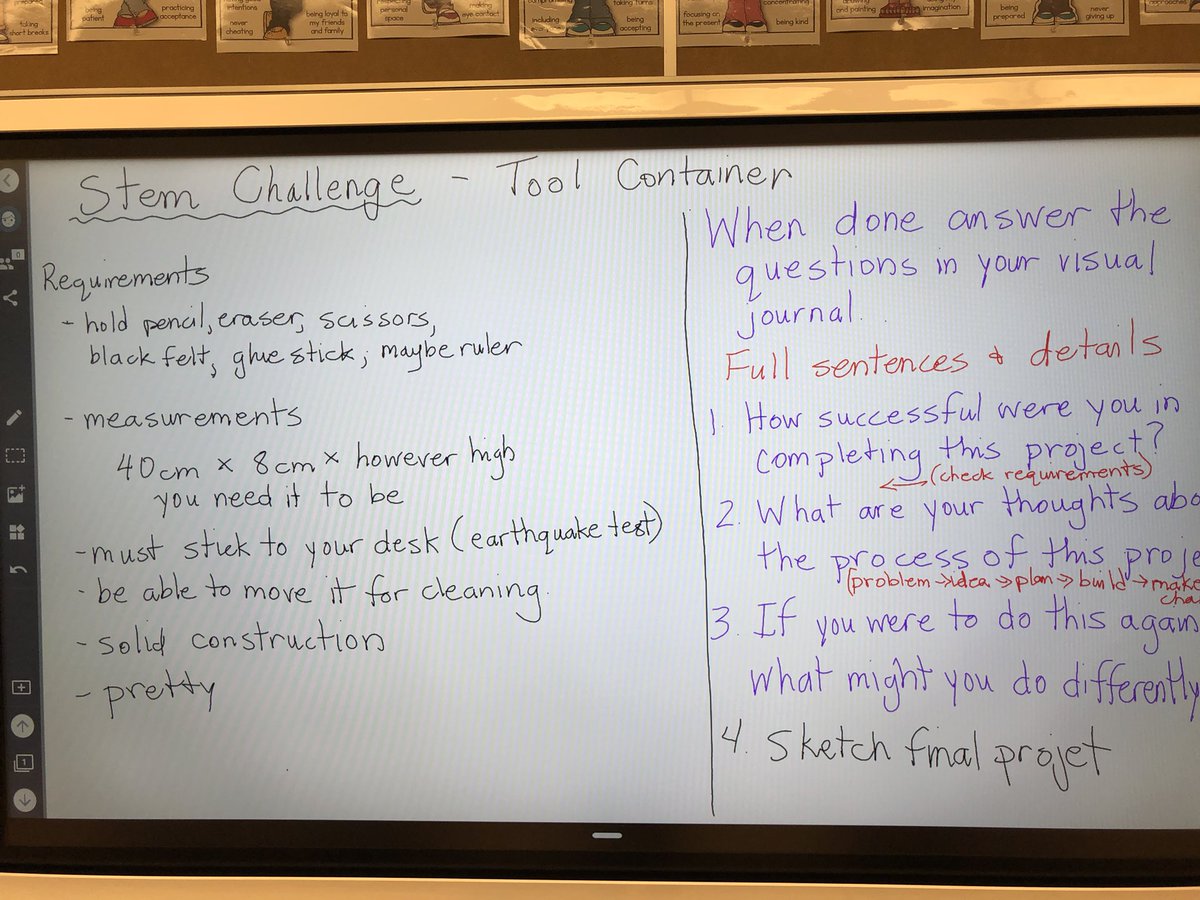 short breaks
being patient
practicing acceptance
intentions
never cheating
being loyal to my friends and family
personal space
making eye contact
taking turns
including
being accepting
focusing on the present
concentrating
being kind
and painting
imagination
being prepared
never giving up
Stem Challenge - Tool Container
Requirements
- hold pencil, eraser, scissors,
black felt, glue stick, maybe ruler
- measurements
40cm x 8cm x however high
you need it to be
- must stick to your desk (earthquake test)
- be able to move it for cleaning.
- solid construction
- pretty
When done answer the
questions in your visual
journal.
Full sentences & details
1. How successful were you in
completing this project?
(check requirements)
2. What are your thoughts abo
the process of this proje
(problem → idea → plan → build → make
cha
3. If you were to do this again
what might you do differently
4. Sketch final projet
0
1